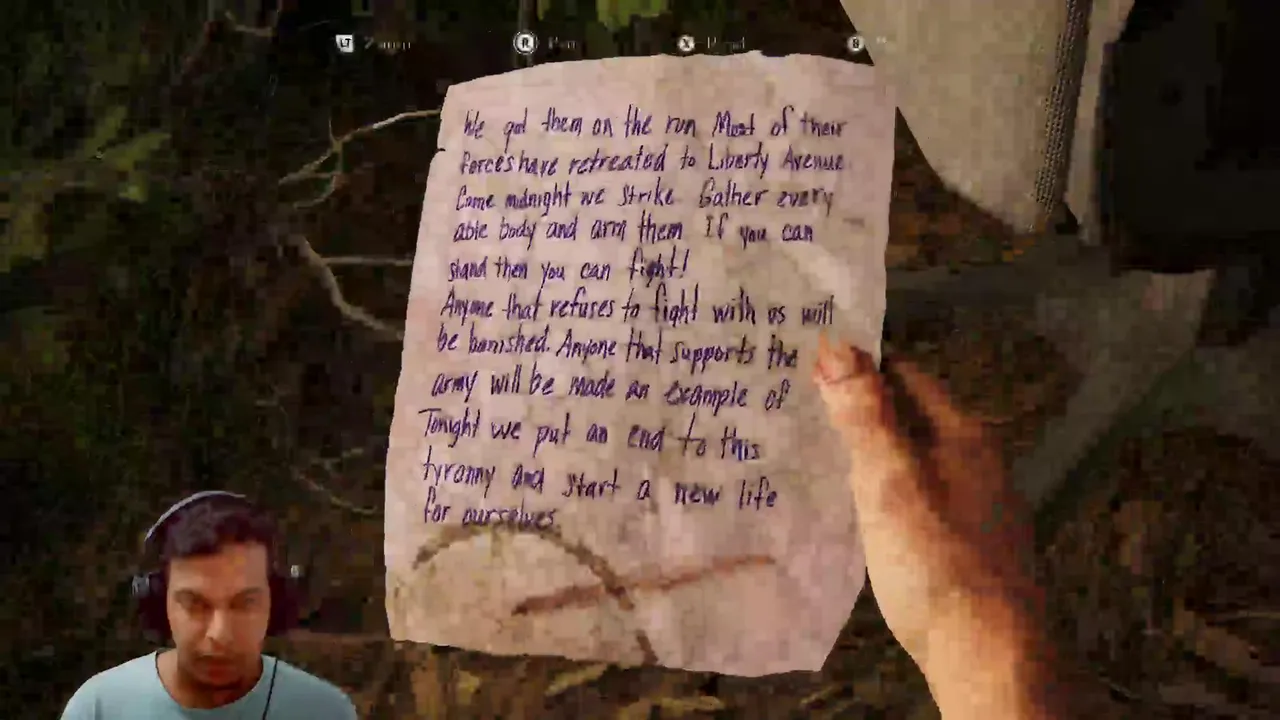 LT R X B
We got them on the run Most of their
forces have retreated to Liberty Avenue
Come midnight we strike Gather every
able body and arm them If you can
stand then you can fight!
Anyone that refuses to fight with us will
be banished. Anyone that supports the
army will be made an example of
Tonight we put an end to this
tyranny and start a new life
for ourselves.